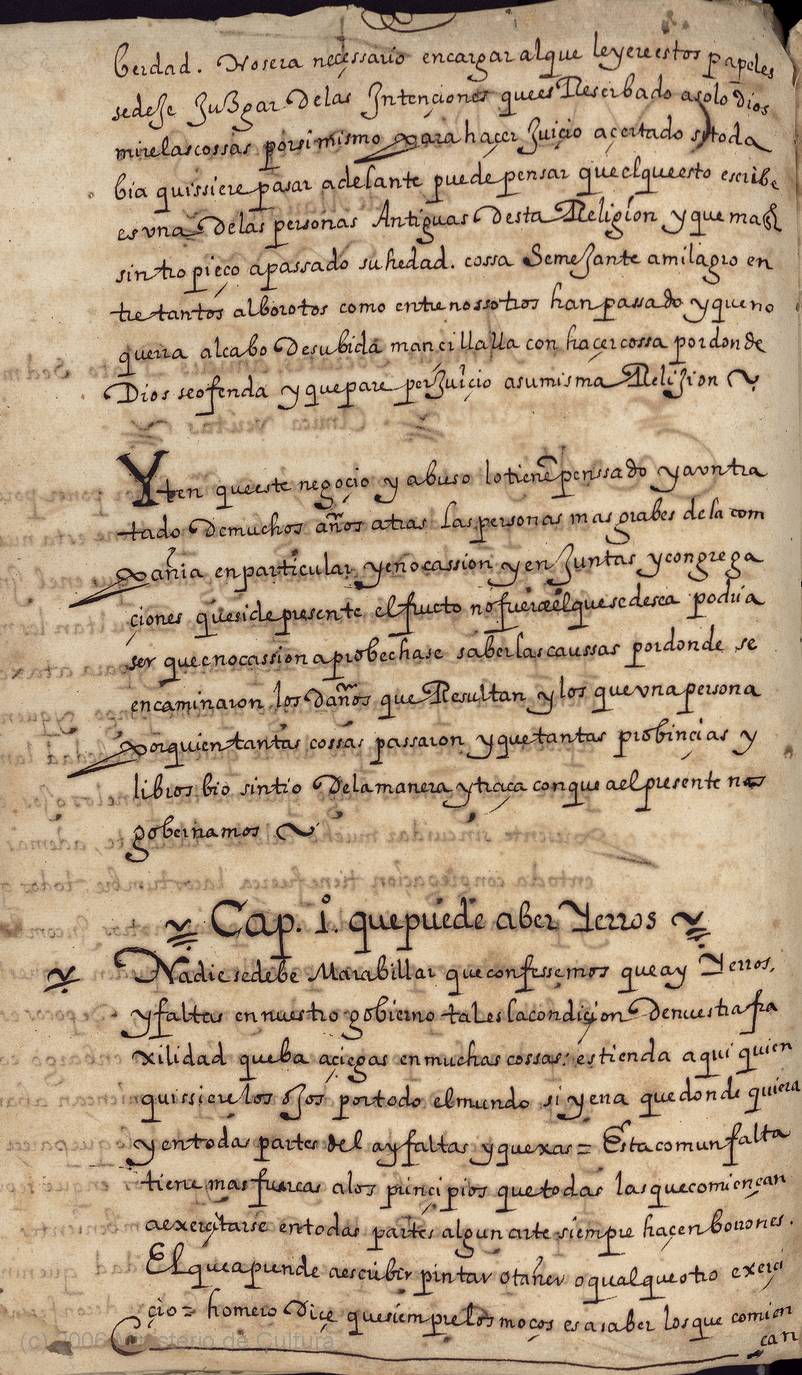 berdad. No sera neçessario encargar al que leyere estos papeles
se deje Juzgar de las Intençiones que es Reserbado a solo dios
mire las cossas por si mismo para haçer Juiçio açertado si toda
bia quissiere pasar adelante puede pensar que el que esto escribe
es vna de las personas Antiguas desta Religion y que mas
sintro pieço a passado su hedad. cossa Semejante a milagro en
tre tantos alborotos como entre nossotros han passado y que no
querra al cabo de subida mançillalla con haçer cossa por donde
Dios se ofenda y que pare perJuiçio a su misma Religion
Yten que este negoçio y abuso lo tiene penssado y a vn tra
tado de muchos años atras las personas mas grabes de la com
pañia en particular y en ocassion y en Juntas y congrega
çiones que si de presente el fructo no fuere el que se desea podria
ser que en ocassion aprobechase saber las caussas por donde se
encaminaron los daños que Resultan y los que vna persona
por quien tantas cossas passaron y que tantas probinçias y
libros bio sintio de la manera y traça con que a el presente nos
gobernamos
Cap. 1º. que puede aber Yerros
Nadie se debe Marabillar que confessemos que ay Yerros,
y faltas en nuestro gobierno tal es la condiçion de nuestra fra
xilidad que ba a çiegas en muchas cossas: estienda aqui quien
quissiere los ojos por todo el mundo si yera que donde quiera
y en todas partes del ay faltas y quexas = Esta comun falta
tiene mas fuercas a los prinçipios que todas las que comiençan
a exerçitarse en todas partes algun arte siempre haçen borrones.
El que aprende a escribir pintar o tañer o qualque otro exerçi
çio = homero Diçe que siempre los moços es a saber los que comien
can
(c) 2006 Ministerio de Cultura